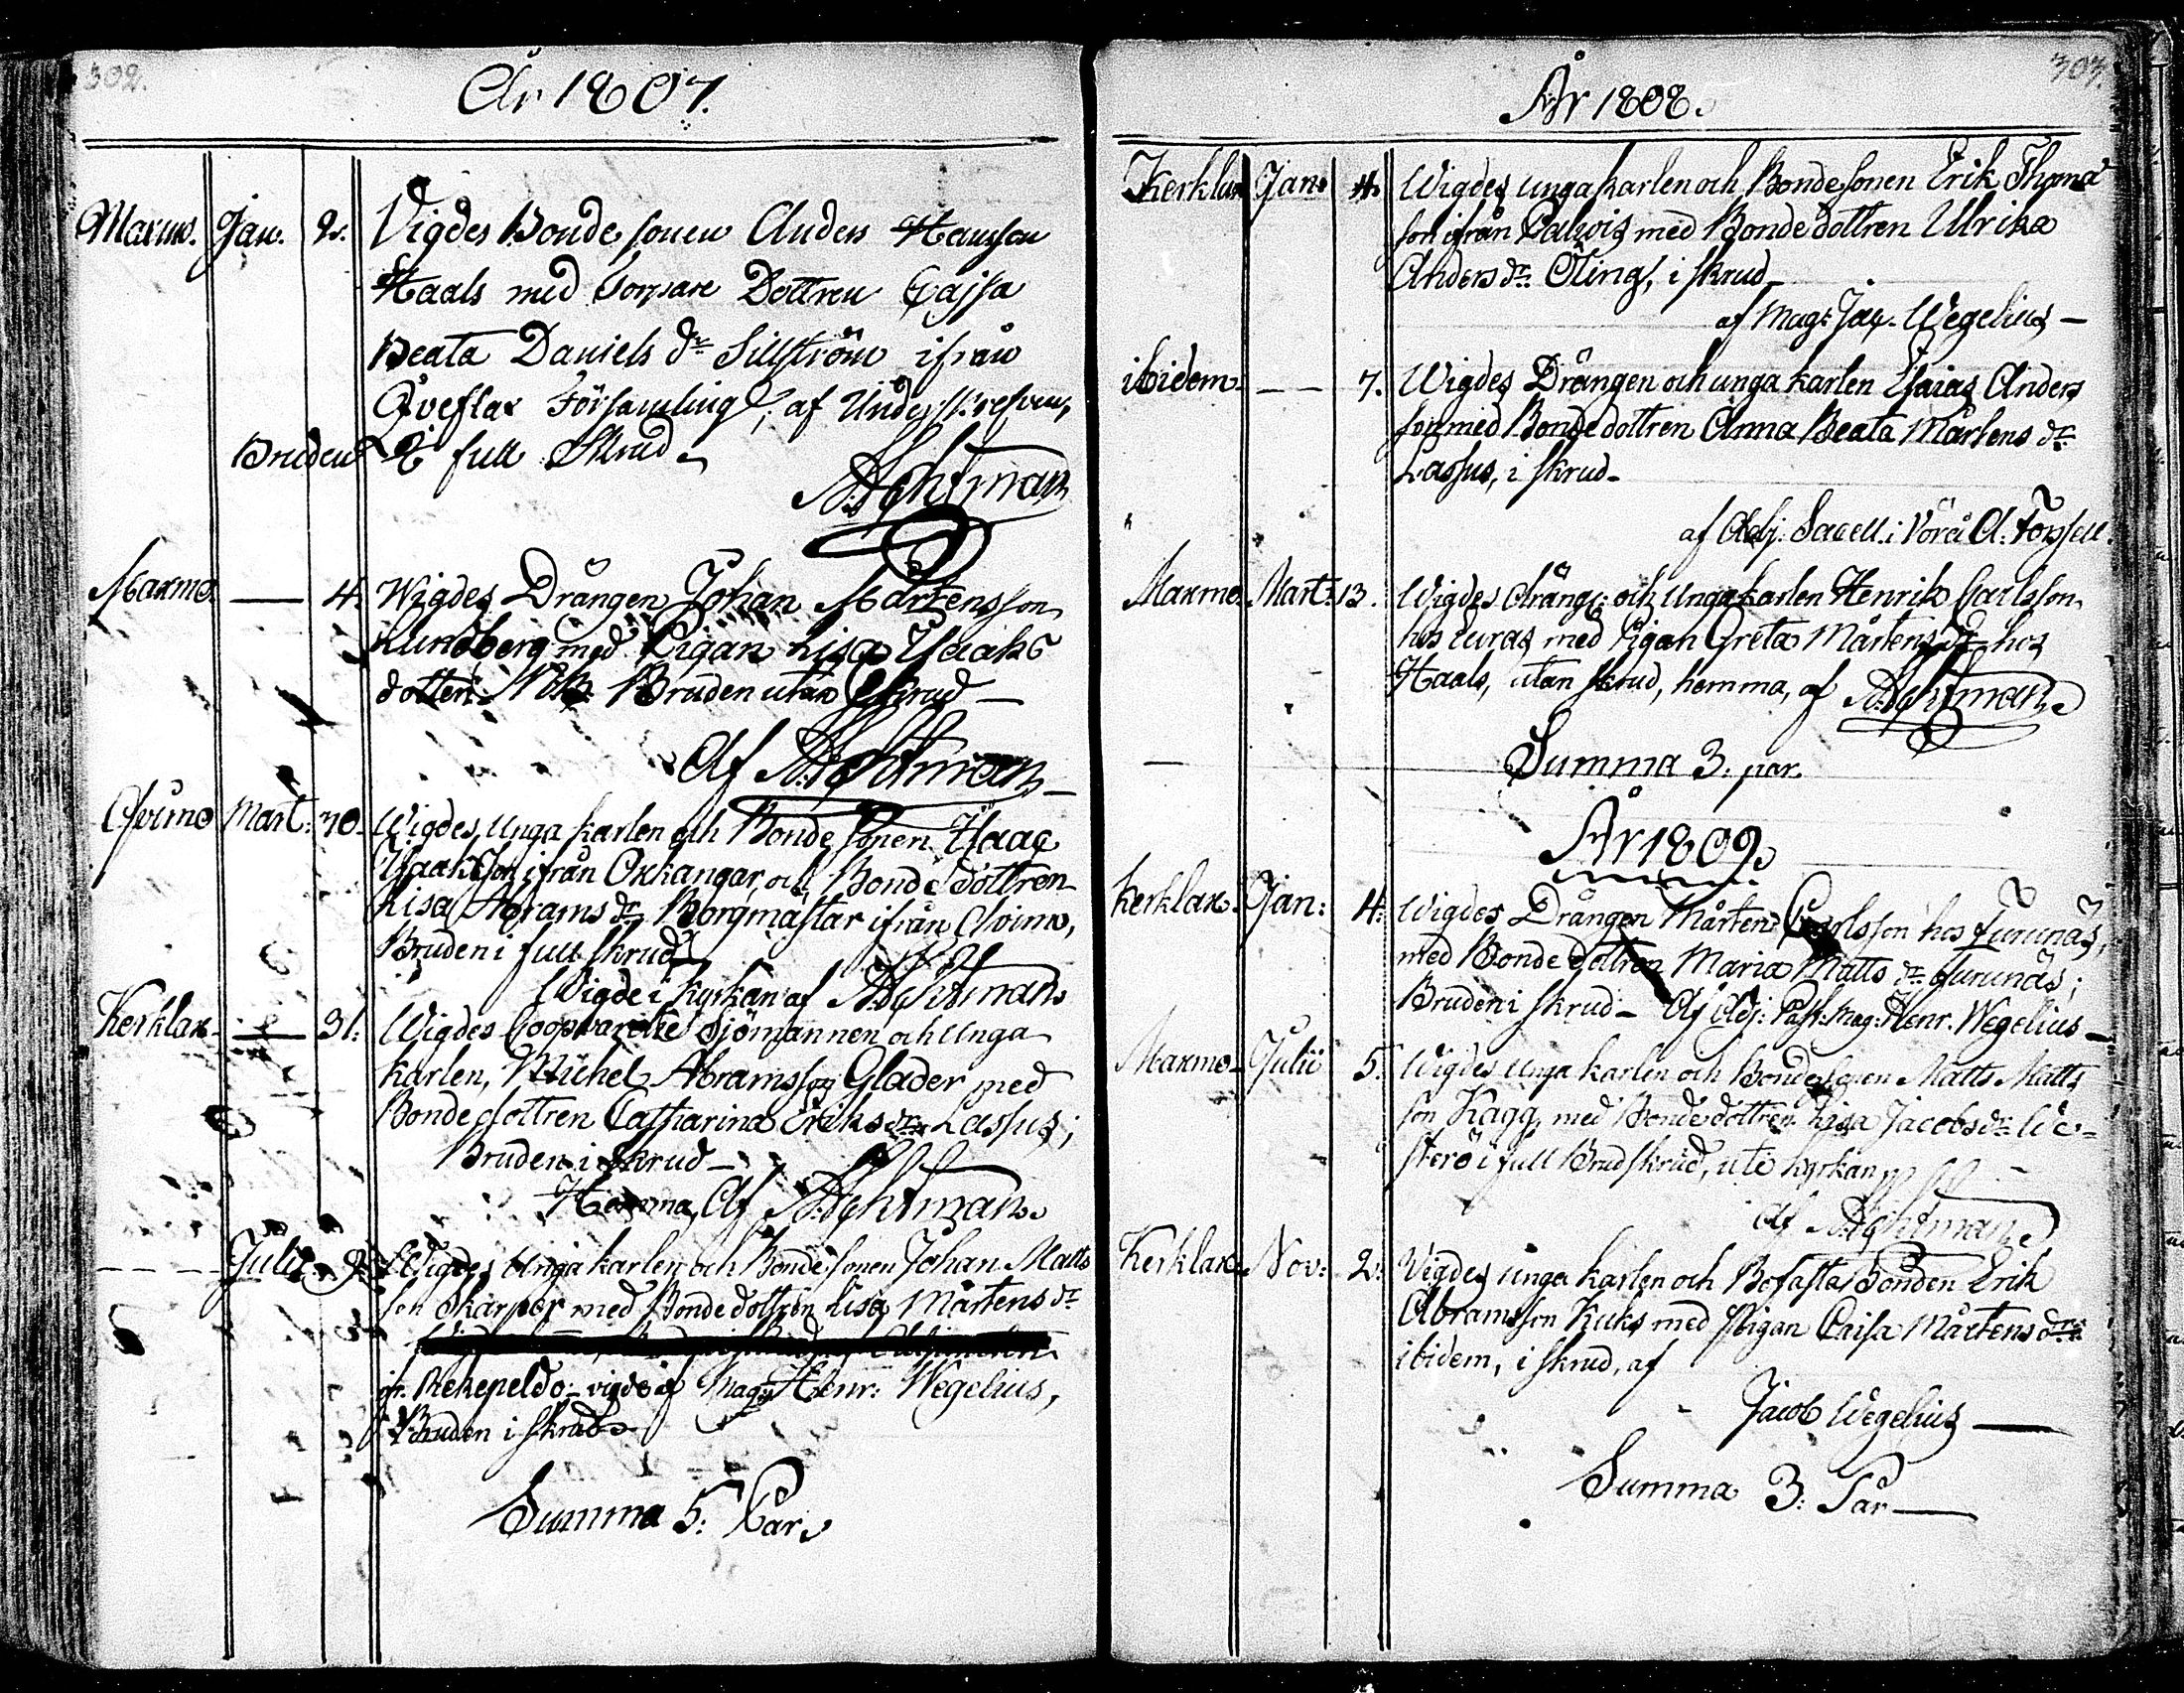 302.
År 1807.
Maxmo. Jan. 2. Vigdes Bonde sonen Anders Hansson
Haals med Torpare Dottren Cajsa
Beata Daniels dr Sillström ifrån
Qveflax Församling, af Underskrefven,
Bruden i full Skrud.
A. Achtman
Maxmo. — 4. Wigdes Drängen Johan Mårtensson
Lundberg med Pigan Lisa Isaaks
dotter Bruden utan Skrud —
Af A. Achtman
Oxvimo Mart: 10. Wigdes Unga karlen och Bonde sonen Isaac
Isaaksson ifrån Oxkangar, och Bonde dottren
Lisa Abrams dr Borgmästar ifrån
Bruden i full skrud
Wigde i Kyrkan af A. Achtman
Kerklax — 31: Wigdes Coopvardie Sjömannen och Unga
karlen, Michel Abramsson Glader med
Bonde dottren Catharina Eriks dr Lassus;
Bruden i skrud —
Hemma, Af A. Achtman
— — — Julii 9. Wigdes Unga karlen och Bonde sonen Johan Matts
son Skarper med Bonde dottren Lisa Mårtens dr
ifr. Rekepeldo. vigde af Mag. Henr: Wegelius,
Bruden i skrud
Summa 5: Par.
303.
År 1808.
Kerklax Jan: 4. Wigdes unga karlen och Bonde sonen Erik Thoma
son ifrån Palvis med Bonde dottren Ulrika
Anders dr Öling, i skrud
af Mag: Jac. Wegelius —
ibidem — — 7. Wigdes Drängen och unga karlen Esaias Anders
son med Bonde dottren Anna Beata Mårtens dr
Lassus, i skrud.
af Adj: Sacell. i Vörå A. Forssell.
Maxmo. Mart: 13. Wigdes dräng: och Unga karlen Henrik Carlsson
hos Luras med Pigan Greta Mårtens dr hos
Haals, utan skrud, hemma, af A. Achtman
Summa 3: par.
År 1809.
Kerklax. Jan: 4: Wigdes Drängen Mårten Carlsson hos Furunäs,
med Bonde dottren Maria Matts dr Furunäs;
Bruden i skrud — Af Adj: Past: Mag: Henr. Wegelius —
Maxmo — Julii 5. Wigdes unga karlen och Bonde sonen Matts Matts
son Kagg, med Bonde dottren Lisa Jacobs dr We=
sterö i full Brudskrud, uti kyrkan
af A. Achtman
Kerklax. Nov: 2: Vigdes unga karlen och Bofasta Bonden Erik
Abramsson Kuks med Pigan Caisa Mårtens dr
ibidem, i skrud, af
Jacob Wegelius —
Summa 3: Par —